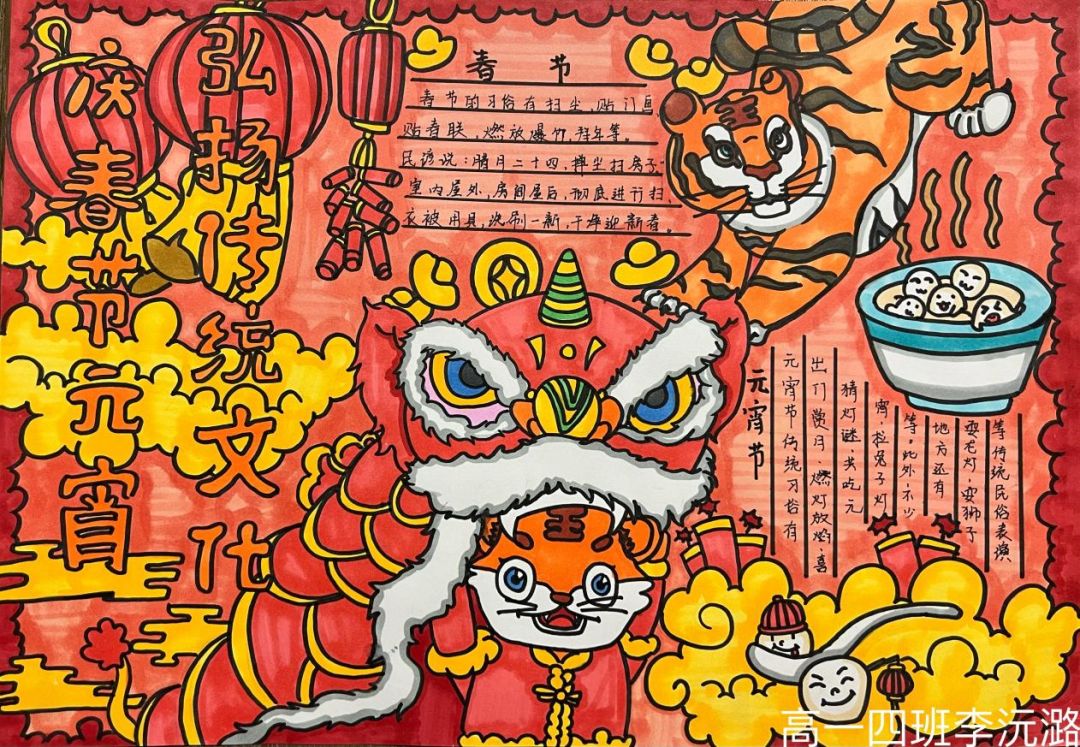 弘扬传统文化
庆春节元宵
春节
春节的习俗有扫尘,贴门画
贴春联,燃放爆竹,拜年等。
民谚说:腊月二十四,掸尘扫房子"
室内屋外,房间屋后,彻底进行扫、
衣被用具,洗刷一新,干净迎新春。
元宵节
元宵节传统习俗有
出门赏月、燃灯放焰、喜
猜灯谜、共吃元
宵、拉兔子灯
等。此外,不少
地方还有
耍龙灯,耍狮子
等传统民俗表演
王
王
高一四班李沅潞